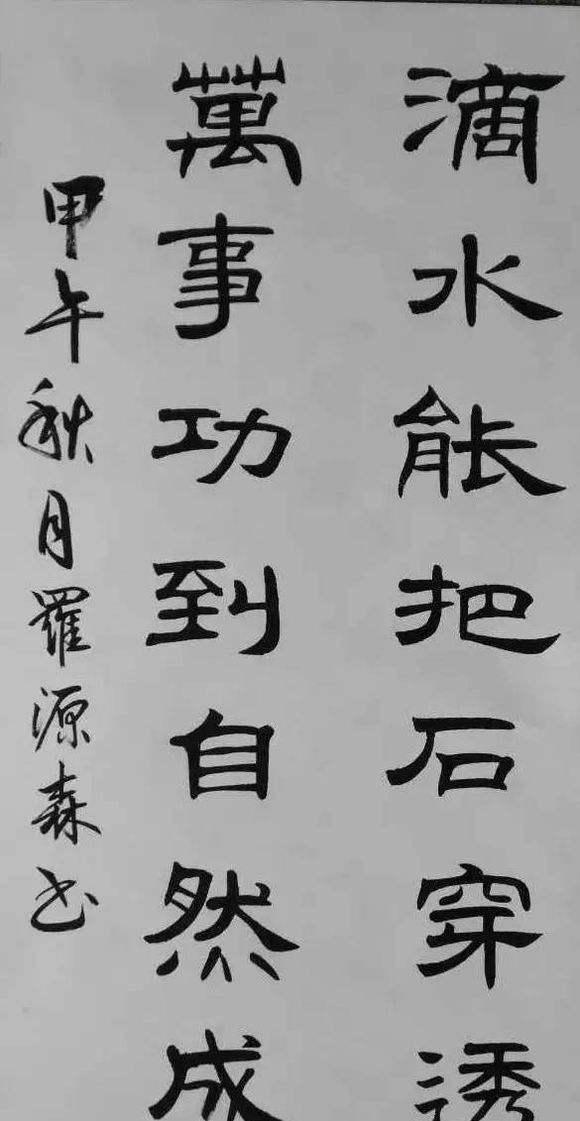 滴水能把石穿透
萬事功到自然成
甲午秋月羅源森书